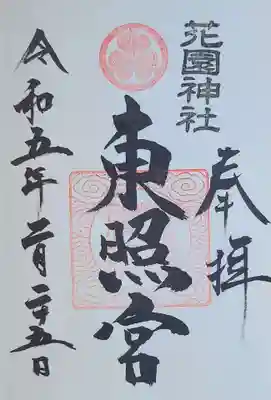 奉拝
花園神社
東照宮
令和五年二月二十五日